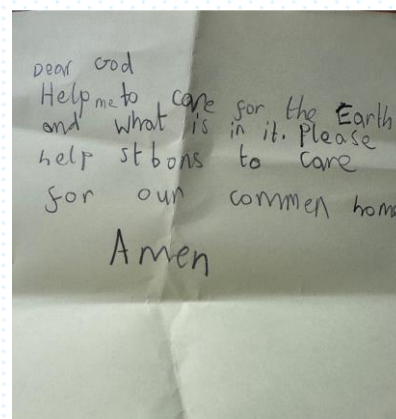 Dear God
Help me to care for the Earth
and what is in it. Please
help st bons to care
for our commen home
Amen